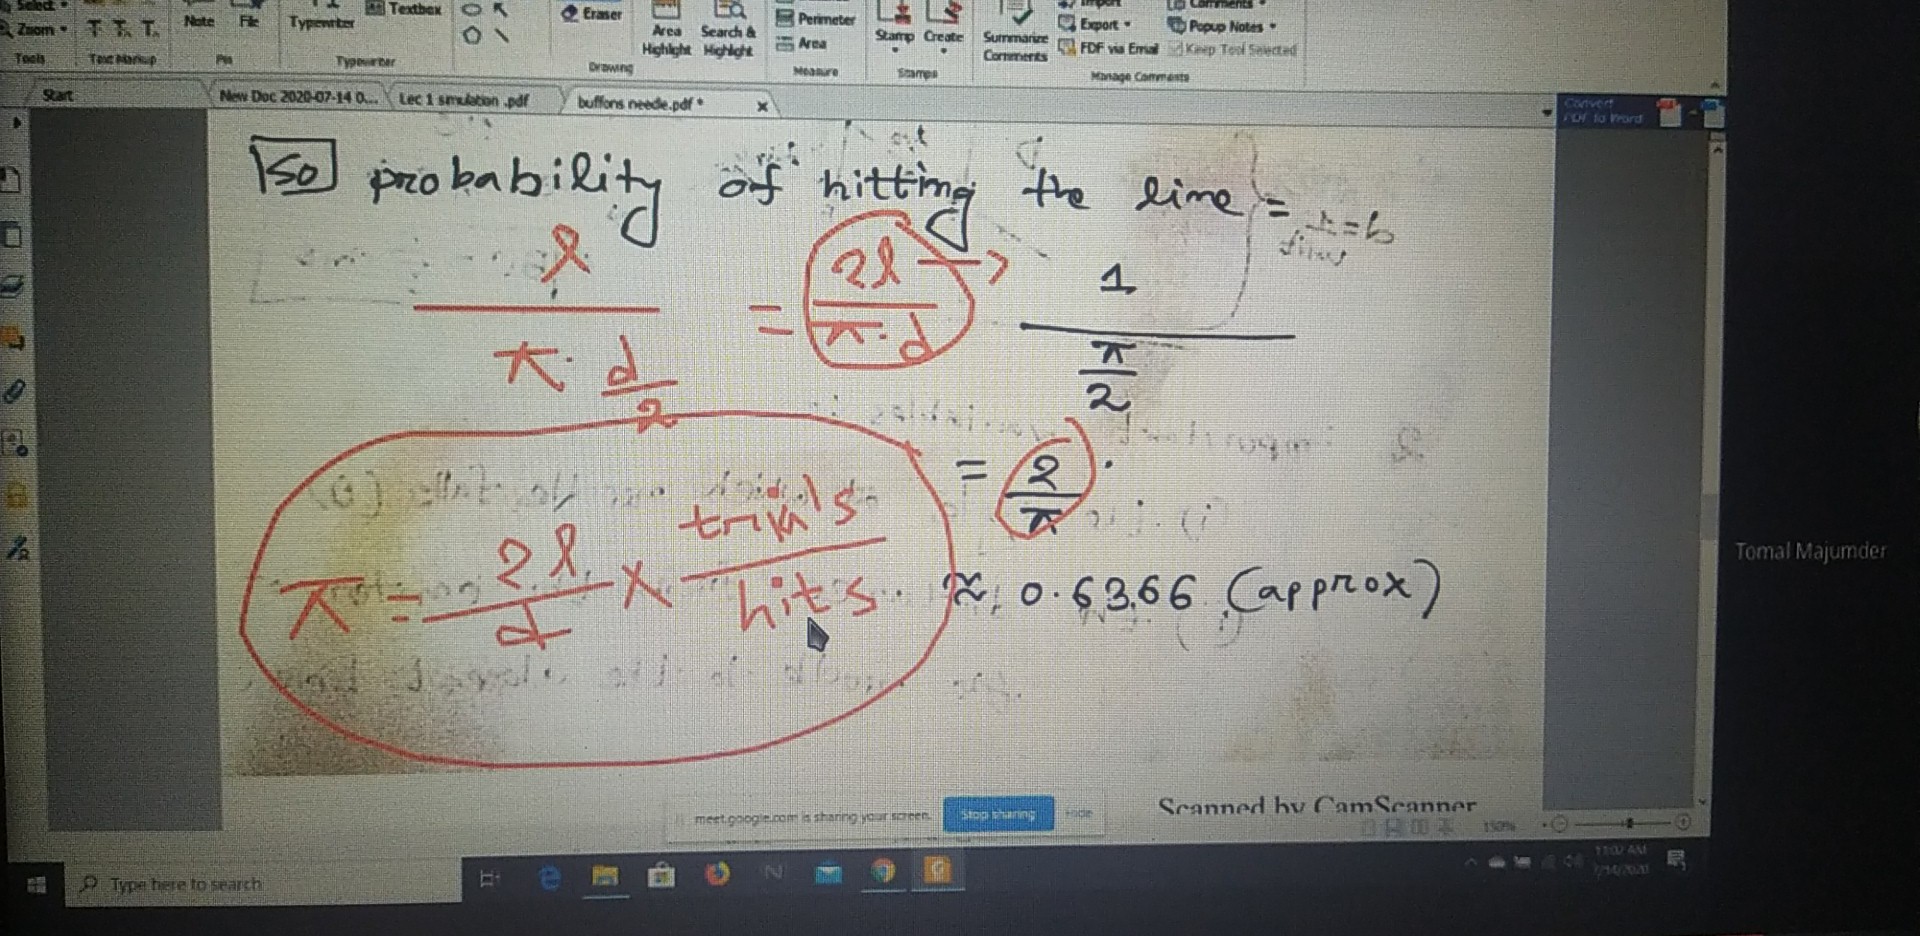 Select
Zoom
Tools
Text Markup
Note File
Pin
Typewriter
Textbox
Typewriter
Eraser
Drawing
Area Highlight
Search & Highlight
Perimeter
Area
Measure
Stamp Create
Stamps
Summarize Comments
Import
Export
FDF via Email
Comments
Popup Notes
Keep Tool Selected
Manage Comments
Start
New Doc 2020-07-14 0...
Lec 1 simulation .pdf
buffons needle.pdf *
Convert
PDF to Word
So probability of hitting the line =
l / (π · d/2) = 2l / (π · d) → 1 / (π/2)
= 2/π
π = 2l/d × trials/hits
≈ 0.6366 (approx)
Tomal Majumder
meet.google.com is sharing your screen.
Stop sharing
Hide
Scanned by CamScanner
150%
Type here to search
11:02 AM
7/14/2020